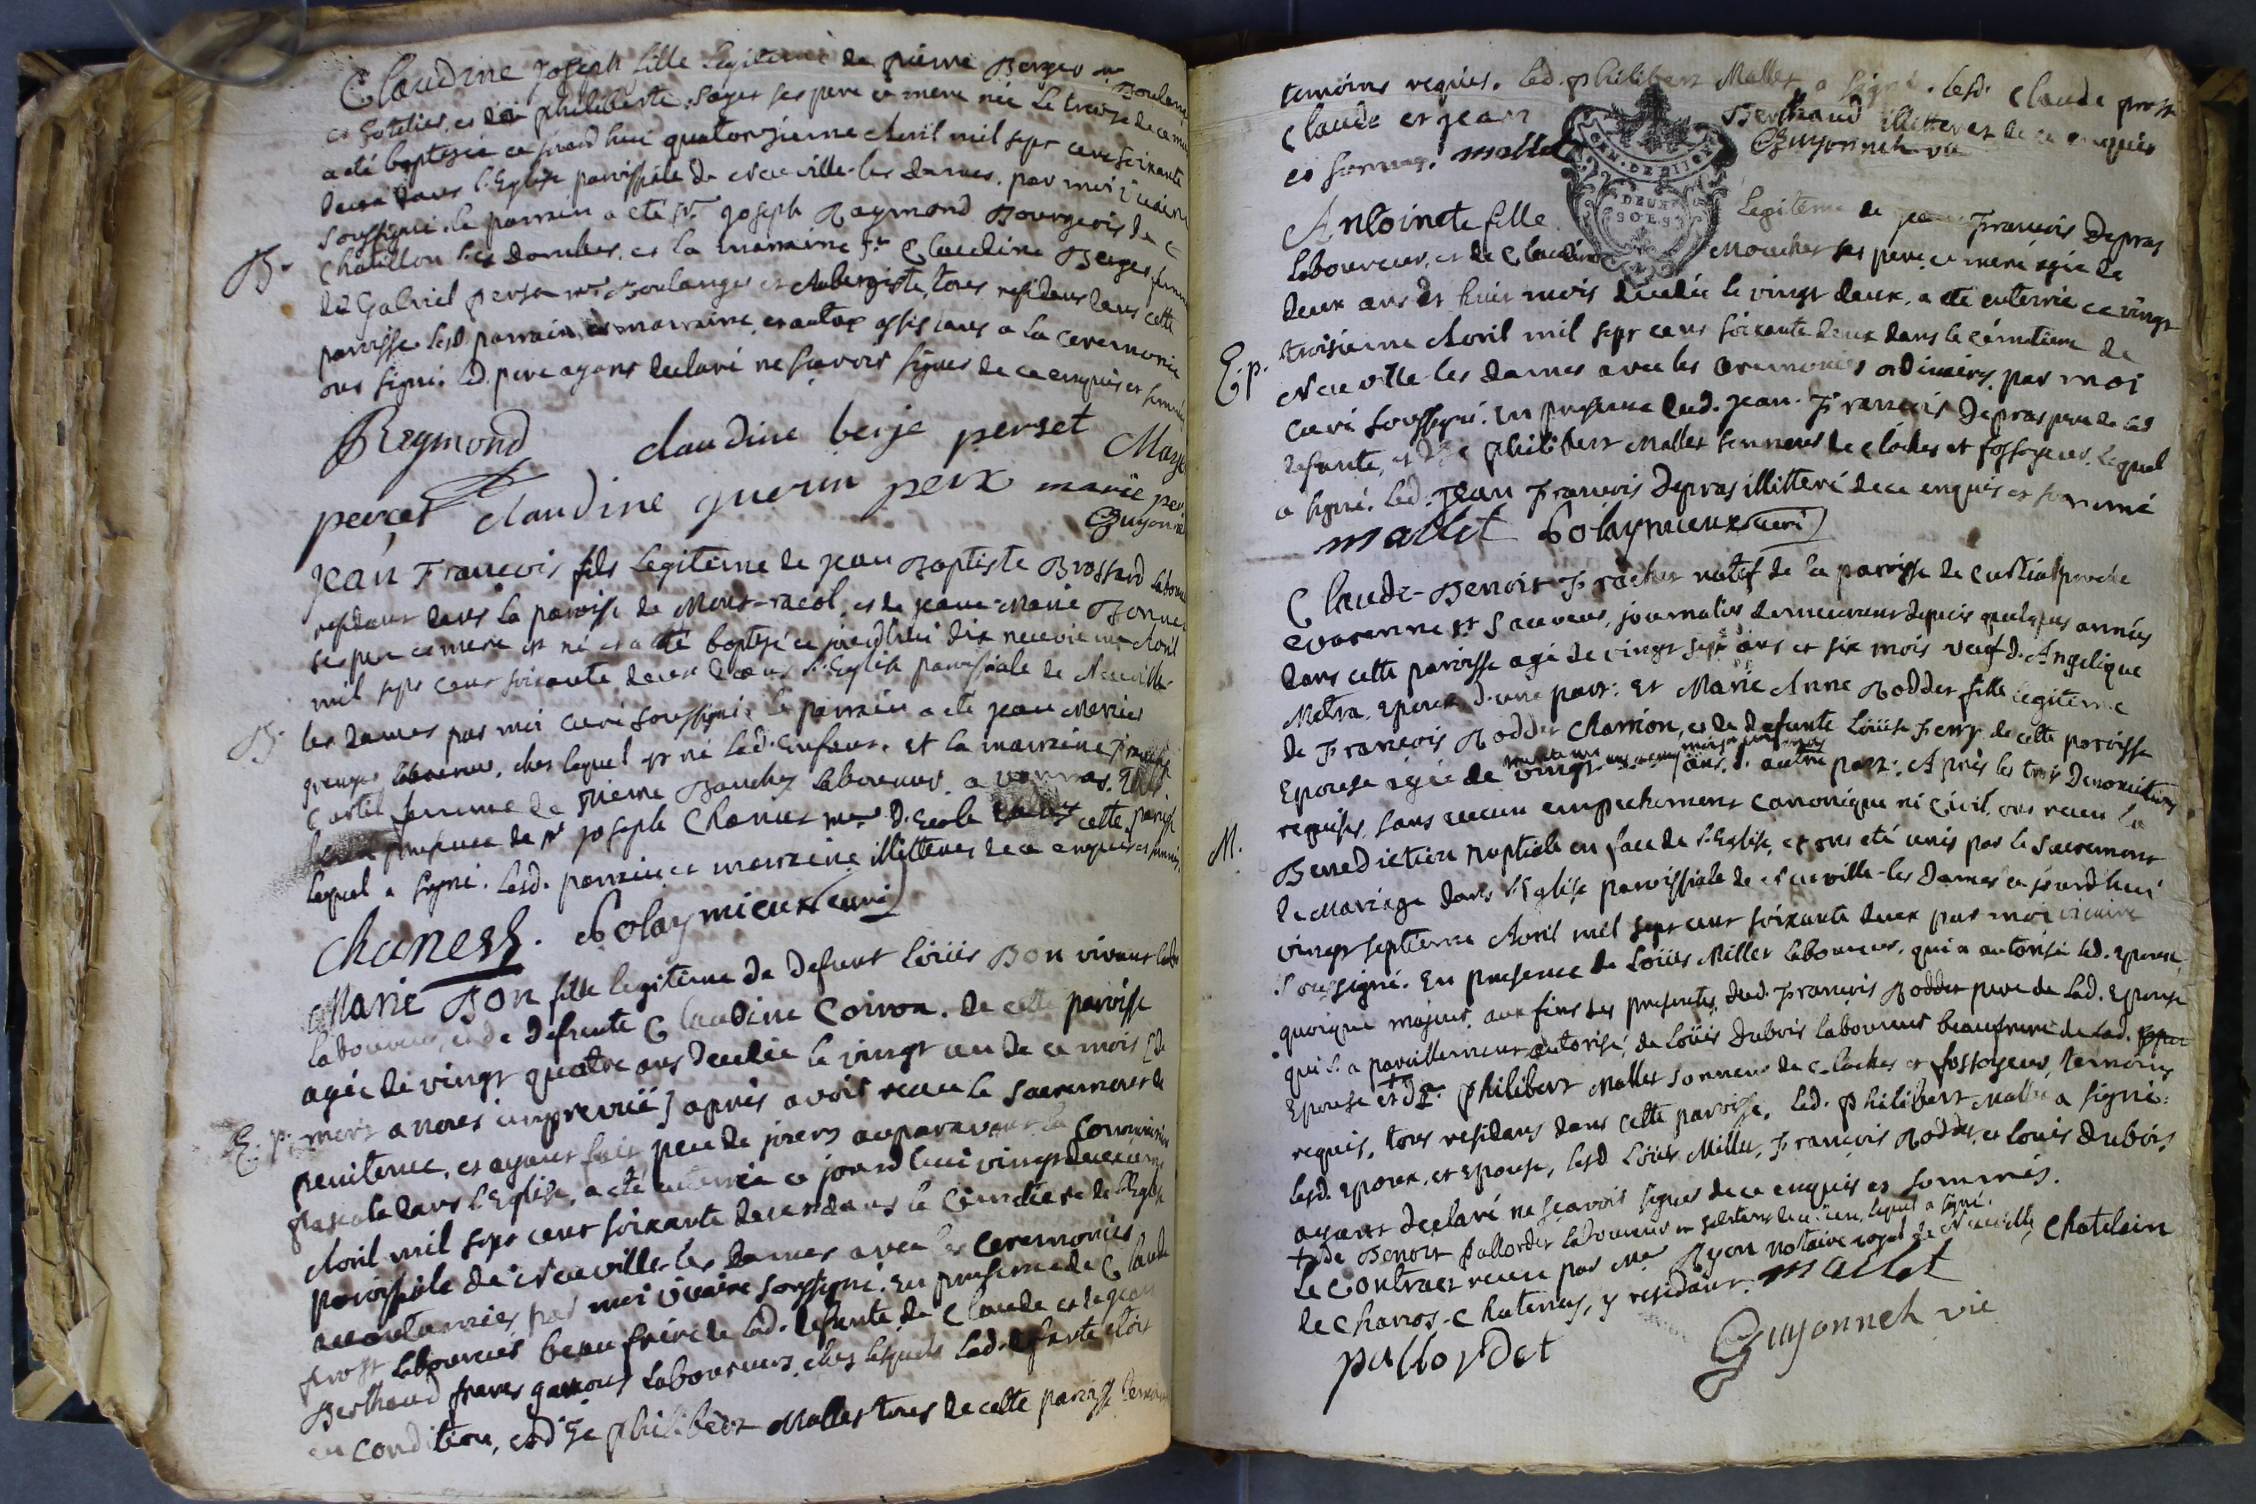 Claudine Joseph fille legitime de pierre Berger mre Boulang
et hotelier, et de philiberte Sayer ses pere et mere née le treize de ce moi
a été baptisée ce jourd'hui quatorzieme Avril mil sept cent soixante
deux dans l'Eglise paroissiale de Neuville-les dames. par moi vicaire
soussigné. le parrain a été sr. Joseph Raymond Bourgeois de
Chatillon les dombes. et la marraine Claudine Berger, femme
de Gabriel perset mre Boulanger et Aubergiste, tous residans dans cette
paroisse. lesd parrain, et marraine, et autres assistans a la ceremonie
ont signé. led. pere ayant declaré ne scavoir signer de ce enquis et sommé
B.
Raymond claudine berje perset Marge
perçet claudine guerin perx marie per
Guyonne
Jean Francois fils legitime de Jean Baptiste Brossard laboure
residant dans la paroisse de Mont-racol, et de Jeane-Marie Bonne
ses pere et mere est né et a été baptisé ce jourd'hui dix neuvieme Avril
mil sept cent soixante deux dans l'Eglise paroissiale de Neuville
les dames par moi curé soussigné. le parrain a été Jean Marie
granger laboureur, ches lequel est né led. Enfant. et la marraine
Cartel femme de Pierre Bouchy laboureur. a vonnas.
presence de sr Joseph Chanes mre. D. Ecole cette paroisse
lequel a signé. lesd. parrain et marraine illitterés de ce enquis et sommés.
B.
Chanes. Polaymieux curé
Marie Bon fille legitime de defunt Loüis Bon vivant
laboureur, et de defunte Claudine Coiron. de cette paroisse
agée de vingt quatre ans decedée le vingt un de ce mois [de
E.p. mort a nous imprevüe] aprés avoir receu le sacrement de
penitence, et ayant fait peu de jours auparavant la Communion
paschale dans l'Eglise, a été enterrée ce jourd'hui vingt deuxieme
Avril mil sept cent soixante deux dans le Cimetiere de l'Eglise
paroissiale de Neuville les Dames avec les ceremonies
accoutumées, par moi vicaire soussigné. en presence de Claude
prost laboureur beau frere de lad. defunte, de Claude et de Jean
Berthaud freres garçons laboureurs ches lesquels lad. defunte etoit
en condition, et de philibert Mallet tous de cette paroisse temoins
temoins requis. led. philibert Mallet a signé. lesd. Claude prost
Claude et Jean Berthaud illitterés de ce enquis
et sommés. mallet Guyonnet vic
GEN. DE DIJON
DEUX
SOLS
Antoinete fille legitime de Jean Francois Depras
laboureur, et de Claudine Mouchet ses pere et mere agée de
deux ans et huit mois decedée le vingt deux, a été enterrée ce vingt
troisieme Avril mil sept cent soixante deux dans le cémetiere de
E.p.
Neuville-les dames avec les ceremonies ordinaires, par moi
curé soussigné. en presence dud. Jean-Francois Depras pere de lad
defunte, et de philibert Mallet sonneur de cloches et fossoyeur. lequel
a signé. led. Jean Francois Depras illitteré de ce enquis et sommé
mallet Polaymieux curé
Claude-Benoit Fracher natif de la paroisse de Curtiat proche
varenne st Sauveur, journalier demeurant depuis quelques années
dans cette paroisse agé de vingt sept ans et six mois veuf d. Angelique
Metra. Epoux d'une part: et Marie Anne Rodder fille legitime
de Francois Rodder charron, et de defunte Loüise Ferry de cette paroisse
Epouse agée de vingt ans. d'autre part: Aprés les trois Denonciations
requises sans aucun empechement canonique ni civil, ont receu la
M.
Benediction Nuptiale en face de l'Eglise, et ont eté unis par le sacrement
de Mariage dans l'Eglise paroissiale de Neuville-les Dames ce jourd'hui
vingt septieme Avril mil sept cent soixante deux par moi vicaire
soussigné. En presence de Loüis Millet laboureur, qui a autorisé led. epoux,
quoique majeur. aux fins des presentes, dud. Francois Rodder pere de lad. Epouse
qui l'a pareillement autorisé, de Loüis Dubois laboureur beaufrere de lad.
Epouse et de philibert Mallet sonneur de cloches et fossoyeur, temoins
requis, tous residans dans cette paroisse. led. philibert Mallet a signé:
lesd. Epoux, et Epouse, lesd Loüis Millet, Francois Rodder, et Loüis Dubois,
ayant declaré ne scavoir signer de ce enquis et sommés.
+ de Benoit pallordet laboureur lequel a signé.
le contract receu par Me. Ryon notaire royal de Neuville, chatelain
de charros-chatenay, y residant. mallet
pallordet Guyonnet vic